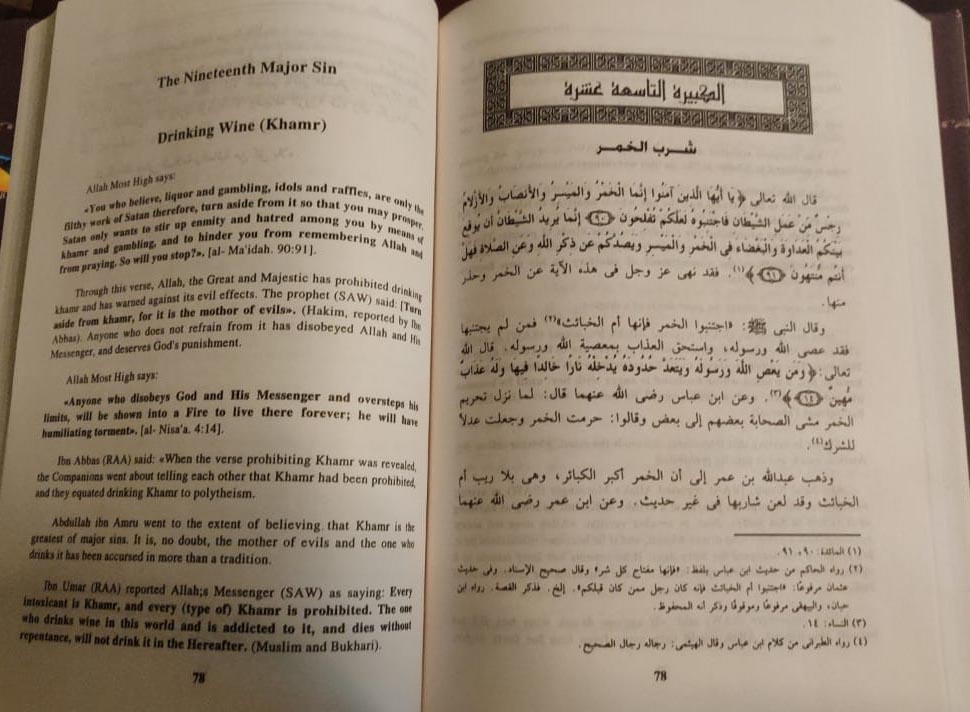 The Nineteenth Major Sin
Drinking Wine (Khamr)
Allah Most High says:
«You who believe, liquor and gambling, idols and raffles, are only the
filthy work of Satan therefore, turn aside from it so that you may prosper.
Satan only wants to stir up enmity and hatred among you by means of
khamr and gambling, and to hinder you from remembering Allah and
from praying. So will you stop?». [al- Ma'idah. 90:91].
Through this verse, Allah, the Great and Majestic has prohibited drinking
khamr and has warned against its evil effects. The prophet (SAW) said: [Turn
aside from khamr, for it is the mother of evils». (Hakim, reported by Ibn
Abbas). Anyone who does not refrain from it has disobeyed Allah and His
Messenger, and deserves God's punishment.
Allah Most High says:
«Anyone who disobeys God and His Messenger and oversteps his
limits, will be shown into a Fire to live there forever; he will have
humiliating torment». [al- Nisa'a. 4:14].
Ibn Abbas (RAA) said: «When the verse prohibiting Khamr was revealed,
the Companions went about telling each other that Khamr had been prohibited,
and they equated drinking Khamr to polytheism.
Abdullah ibn Amru went to the extent of believing that Khamr is the
greatest of major sins. It is, no doubt, the mother of evils and the one who
drinks it has been accursed in more than a tradition.
Ibn Umar (RAA) reported Allah;s Messenger (SAW) as saying: Every
intoxicant is Khamr, and every (type of) Khamr is prohibited. The one
who drinks wine in this world and is addicted to it, and dies without
repentance, will not drink it in the Hereafter. (Muslim and Bukhari).
78
الكبيرة التاسعة عشرة
شرب الخمر
قال الله تعالى ﴿يَا أَيُّهَا الَّذِينَ آمَنُوا إِنَّمَا الْخَمْرُ وَالْمَيْسِرُ وَالأَنصَابُ وَالأَزْلامُ
رِجْسٌ مِّنْ عَمَلِ الشَّيْطَانِ فَاجْتَنِبُوهُ لَعَلَّكُمْ تُفْلِحُونَ ﴿٩٠﴾ إِنَّمَا يُرِيدُ الشَّيْطَانُ أَن يُوقِعَ
بَيْنَكُمُ الْعَدَاوَةَ وَالْبَغْضَاءَ فِي الْخَمْرِ وَالْمَيْسِرِ وَيَصُدَّكُمْ عَن ذِكْرِ اللَّهِ وَعَنِ الصَّلاةِ فَهَلْ
أَنتُم مُّنتَهُونَ ﴿٩١﴾﴾(١). فقد نهى عز وجل فى هذه الآية عن الخمر وحذر
منها.
وقال النبى ﷺ: «اجتنبوا الخمر فإنها أم الخبائث»(٢) فمن لم يجتنبها
فقد عصى الله ورسوله، واستحق العذاب بمعصية الله ورسوله. قال الله
تعالى: ﴿وَمَن يَعْصِ اللَّهَ وَرَسُولَهُ وَيَتَعَدَّ حُدُودَهُ يُدْخِلْهُ نَارًا خَالِدًا فِيهَا وَلَهُ عَذَابٌ
مُّهِينٌ ﴿١٤﴾﴾(٣). وعن ابن عباس رضى الله عنهما قال: لما نزل تحريم
الخمر مشى الصحابة بعضهم إلى بعض وقالوا: حرمت الخمر وجعلت عدلاً
للشرك(٤).
وذهب عبدالله بن عمر إلى أن الخمر أكبر الكبائر، وهى بلا ريب أم
الخبائث وقد لعن شاربها فى غير حديث. وعن ابن عمر رضى الله عنهما
(١) المائدة: ٩٠، ٩١.
(٢) رواه الحاكم من حديث ابن عباس بلفظ: «فإنها مفتاح كل شر» وقال صحيح الإسناد. وفى حديث
عثمان مرفوعًا: «اجتنبوا أم الخبائث فإنه كان رجل ممن كان قبلكم».. إلخ. فذكر القصة. رواه ابن
حبان، والبيهقى مرفوعًا وموقوفًا وذكر أنه المحفوظ.
(٣) النساء: ١٤.
(٤) رواه الطبرانى من كلام ابن عباس وقال الهيثمى: رجاله رجال الصحيح.
78